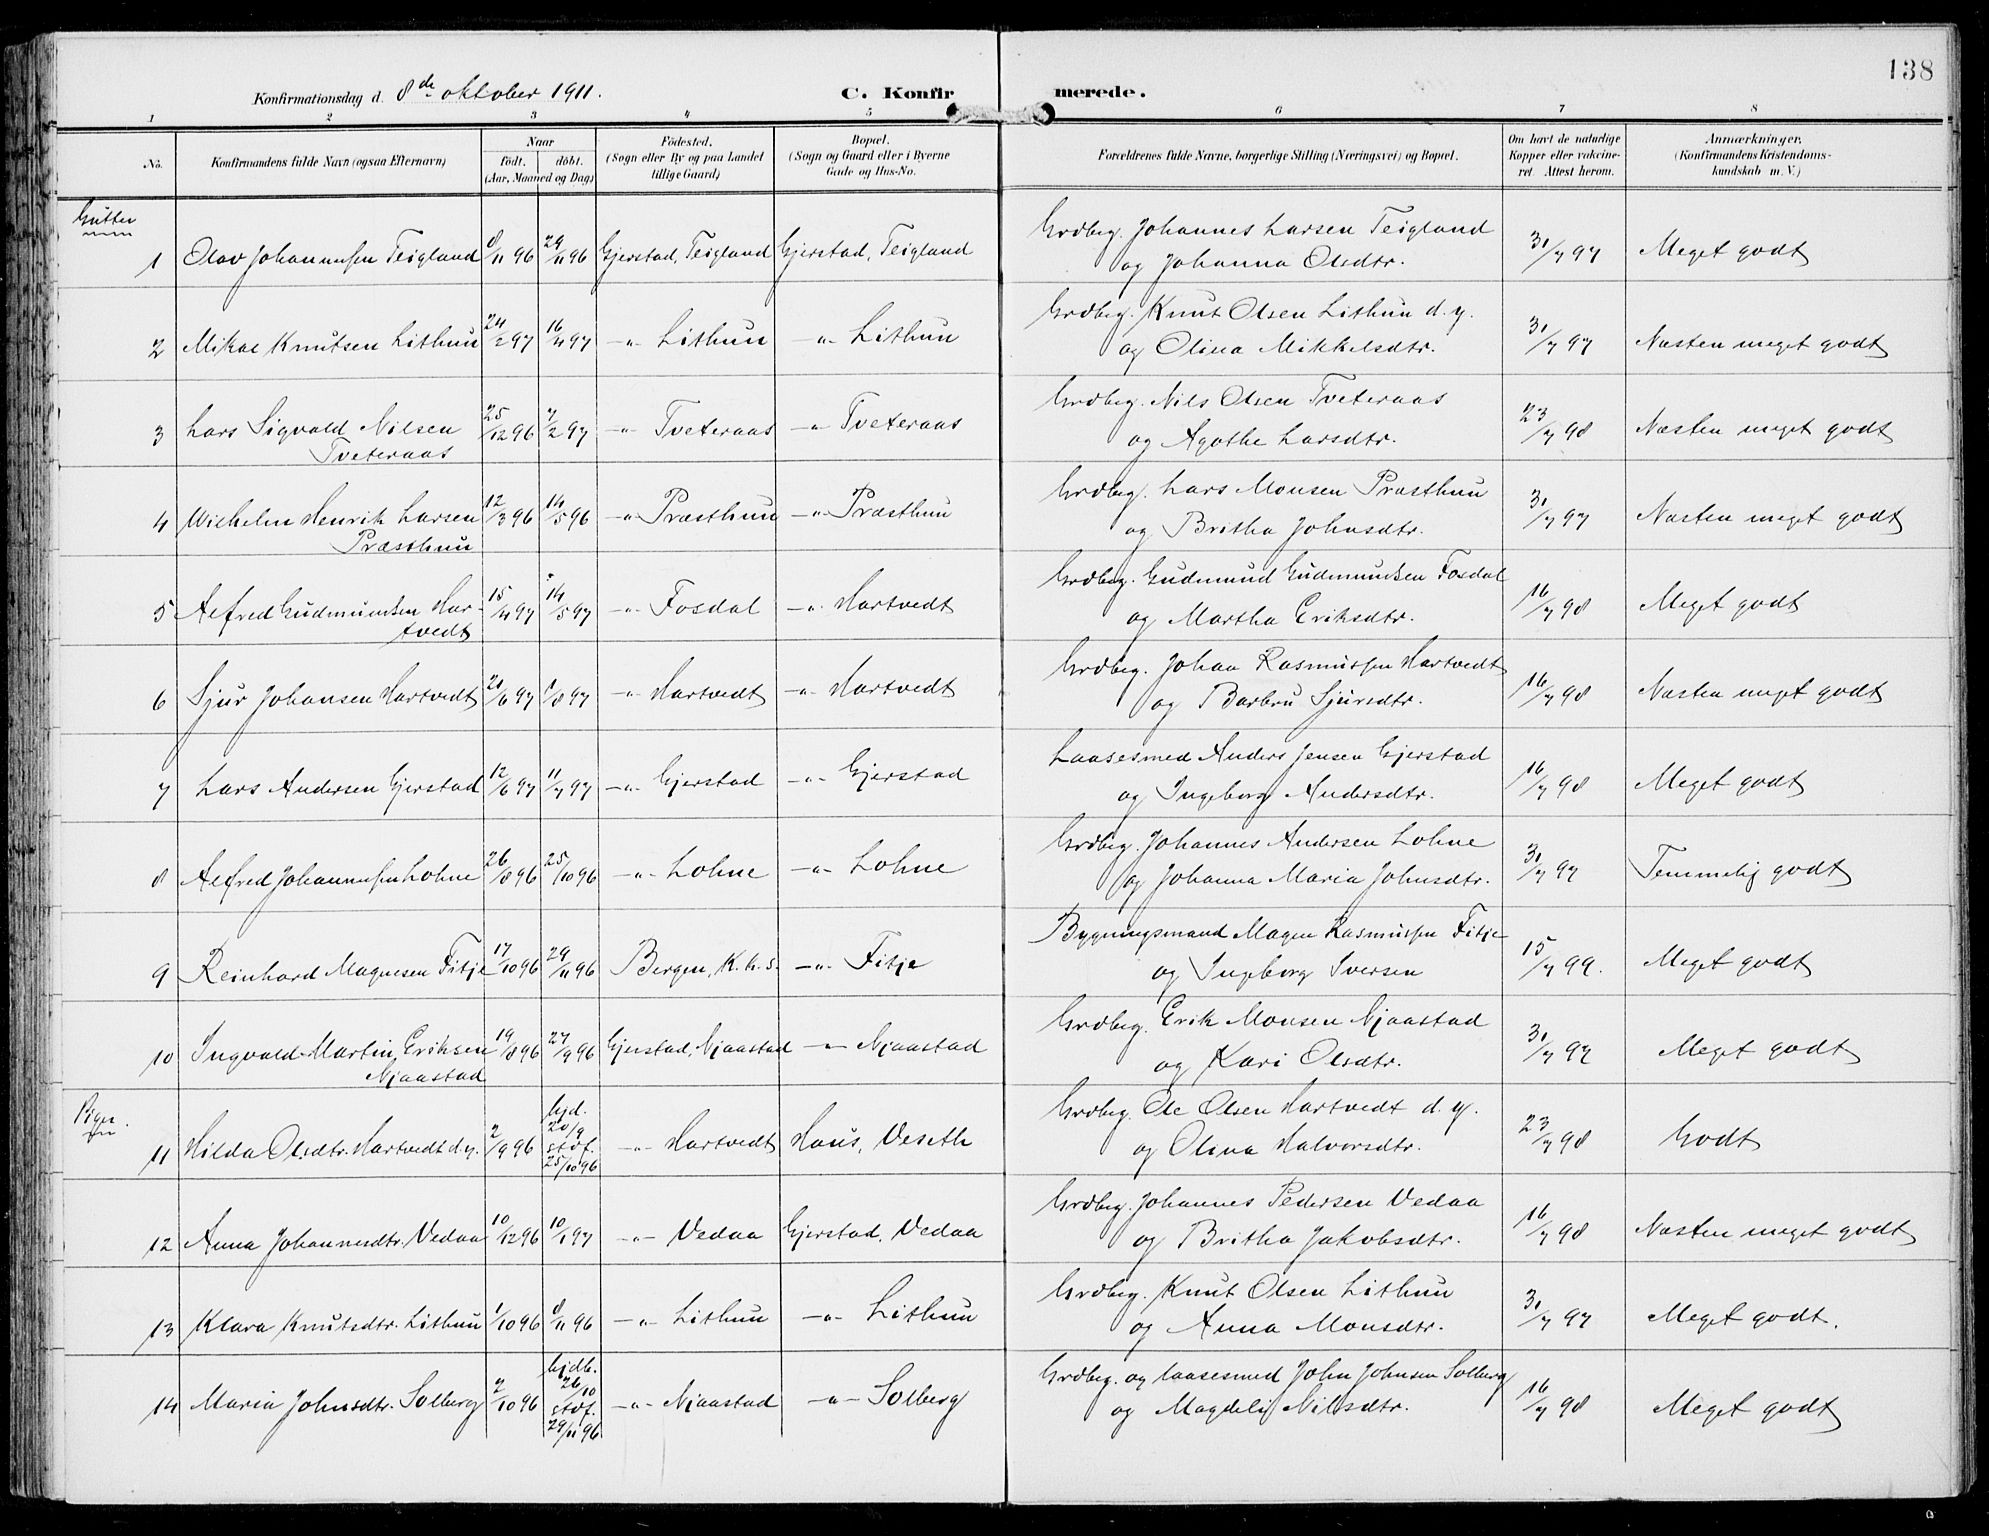 138
Konfirmationsdag d. 8de oktober 1911. C. Konfir merede.
1 2 3 4 5 6 7 8
No. Konfirmandens fulde Navn (ogsaa Efternavn) Naar født. døbt. (Aar, Maaned og Dag) Födested. (Sogn eller By og paa Landet tillige Gaard) Bopæl. (Sogn og Gaard eller i Byerne Gade og Hus-No. Forældrenes fulde Navne, borgerlige Stilling (Næringsvei) og Bopæl. Om havt de naturlige Kopper eller vakcineret. Attest herom. Anmærkninger. (Konfirmandens Kristendomskundskab m. V.)
Gutter
1 Olav Johannessen Teigland 8/11 96 29/11 96 Gjerstad, Teigland Gjerstad, Teigland Grdbrg. Johannes Larsen Teigland
og Johanna Olsdtr. 31/7 97 Meget godt
2 Mikal Knutsen Lithun 24/2 97 16/4 97 -"- Lithun -"- Lithun Grdbrg. Knut Olsen Lithun d. y.
og Olina Mikkelsdtr. 31/7 97 Næsten meget godt
3 Lars Sigvald Nilsen 25/12 96 7/2 97 -"- Tveteraas -"- Tveteraas Grdbrg. Nils Olsen Tveteraas
Tveteraas og Agathe Larsdtr. 23/7 98 Næsten meget godt
4 Wilhelm Henrik Larsen 12/3 96 14/5 96 -"- Præsthun -"- Præsthun Grdbrg. Lars Monsen Præsthun
Præsthun og Britha Johnsdtr. 31/7 97 Næsten meget godt
5 Alfred Gudmundsen Har- 15/4 97 14/5 97 -"- Fosdal -"- Hartvedt Grdbrg. Gudmund Gudmundsen Fosdal
tvedt og Martha Eriksdtr. 16/7 98 Meget godt
6 Sjur Johansen Hartvedt 20/6 97 1/8 97 -"- Hartvedt -"- Hartvedt Grdbrg. Johan Rasmussen Hartvedt
og Barbru Sjursdtr. 16/7 98 Næsten meget godt
7 Lars Andersen Gjerstad 12/6 97 11/7 97 -"- Gjerstad -"- Gjerstad Laasesmed Anders Jensen Gjerstad
og Ingeborg Andersdtr. 16/7 98 Meget godt
8 Alfred Johannessen Lohne 26/8 96 25/10 96 -"- Lohne -"- Lohne Grdbrg. Johannes Andersen Lohne
og Johanna Maria Johnsdtr. 31/7 97 Temmelig godt
9 Reinhard Magnesen Fitje 17/10 96 29/11 96 Bergen, K. k. s. -"- Fitje Bygningsmand Magne Rasmussen Fitje
og Ingeborg Iversen 15/7 99. Meget godt
10 Ingvald Martin Eriksen 19/8 96 27/9 96 Gjerstad, Njaastad -"- Njaastad Grdbrg. Erik Monsen Njaastad
Njaastad og Kari Olsdtr. 31/7 97 Meget godt
Piger.
11 Hilda Olsdtr. Hartvedt d. y. 2/9 96 hjd. 20/9 stdf. 25/10 96 -"- Hartvedt Haus, Veseth Grdbrg. Ole Olsen Hartvedt d. y.
og Olina Halvorsdtr. 23/7 98 Godt
12 Anna Johannesdtr. Vedaa 10/12 96 10/1 97 -"- Vedaa Gjerstad, Vedaa Grdbrg. Johannes Pedersen Vedaa
og Britha Jakobsdtr. 16/7 98 Næsten meget godt
13 Klara Knutsdtr. Lithun 1/10 96 8/11 96 -"- Lithun -"- Lithun Grdbrg. Knut Olsen Lithun
og Anna Monsdtr. 31/7 97 Meget godt.
14 Maria Johnsdtr. Solberg 2/10 96 hjdb. 26/10 stdf. 29/11 96 -"- Njaastad -"- Solberg Grdbrg. og laasesmed John Johnsen Solberg
og Magdeli Nilsdtr. 16/7 98 Meget godt